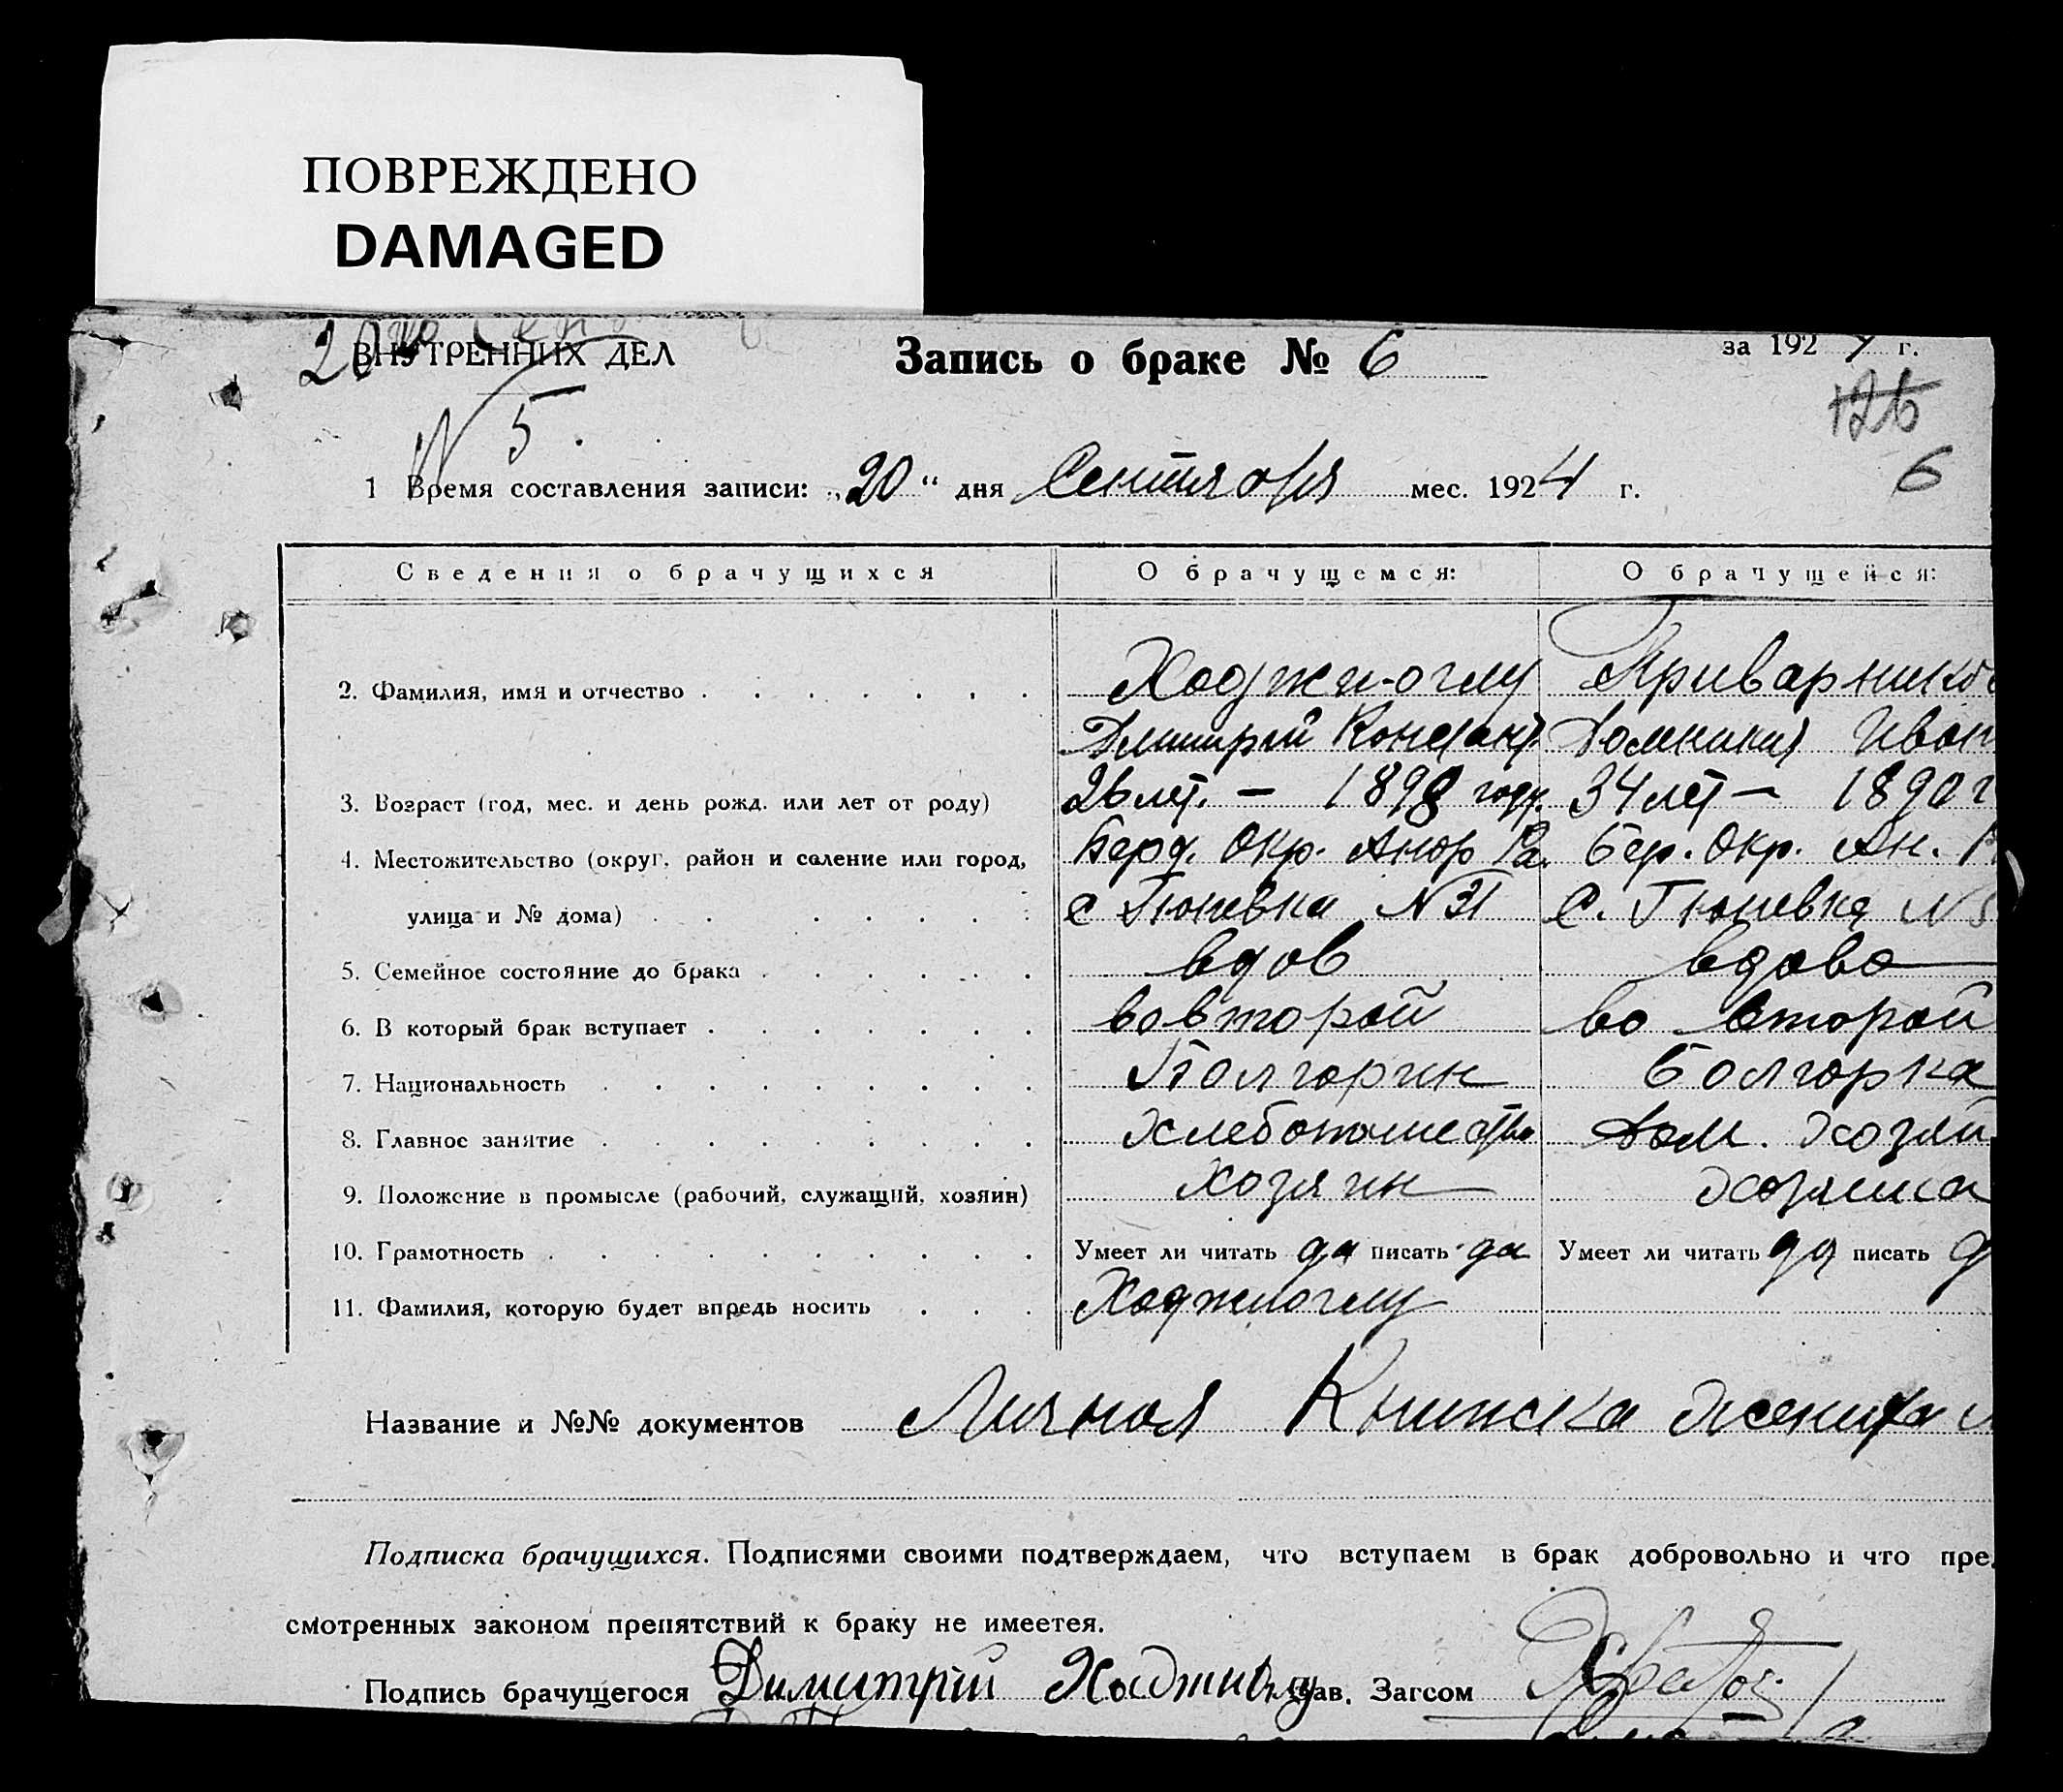 ПОВРЕЖДЕНО
DAMAGED
20го
ВНУТРЕННИХ ДЕЛ
Запись о браке № 6
за 1924 г.
126
N 5.
6
1 Время составления записи: „20“ дня Сентября мес. 1924 г.
Сведения о брачущихся О брачущемся: О брачущейся:
2. Фамилия, имя и отчество Ходжи-оглу Приварников
Дмитрий Констант. Домникия Иван
3. Возраст (год, мес. и день рожд. или лет от роду) 26 лет. — 1898 году. 34 лет — 1890 г
4. Местожительство (округ, район и селение или город, Берд. Окр. Анор Ра. Бер. Окр. Ан. Р
улица и № дома) с Гюневка N 31 С. Гюневка N 5
5. Семейное состояние до брака вдов вдова
6. В который брак вступает во второй во второй
7. Национальность Болгорин Болгорка
8. Главное занятие Хлебопашество Дом. Хозяй
9. Положение в промысле (рабочий, служащий, хозяин) Хозяин Хозяика
10. Грамотность Умеет ли читать да писать да Умеет ли читать да писать д
11. Фамилия, которую будет впредь носить Ходжиоглу
Название и №№ документов Личная Книжка жениха
Подписка брачущихся. Подписями своими подтверждаем, что вступаем в брак добровольно и что пре
смотренных законом препятствий к браку не имеется.
Подпись брачущегося Димитрий Хаджиоглу Зав. Загсом